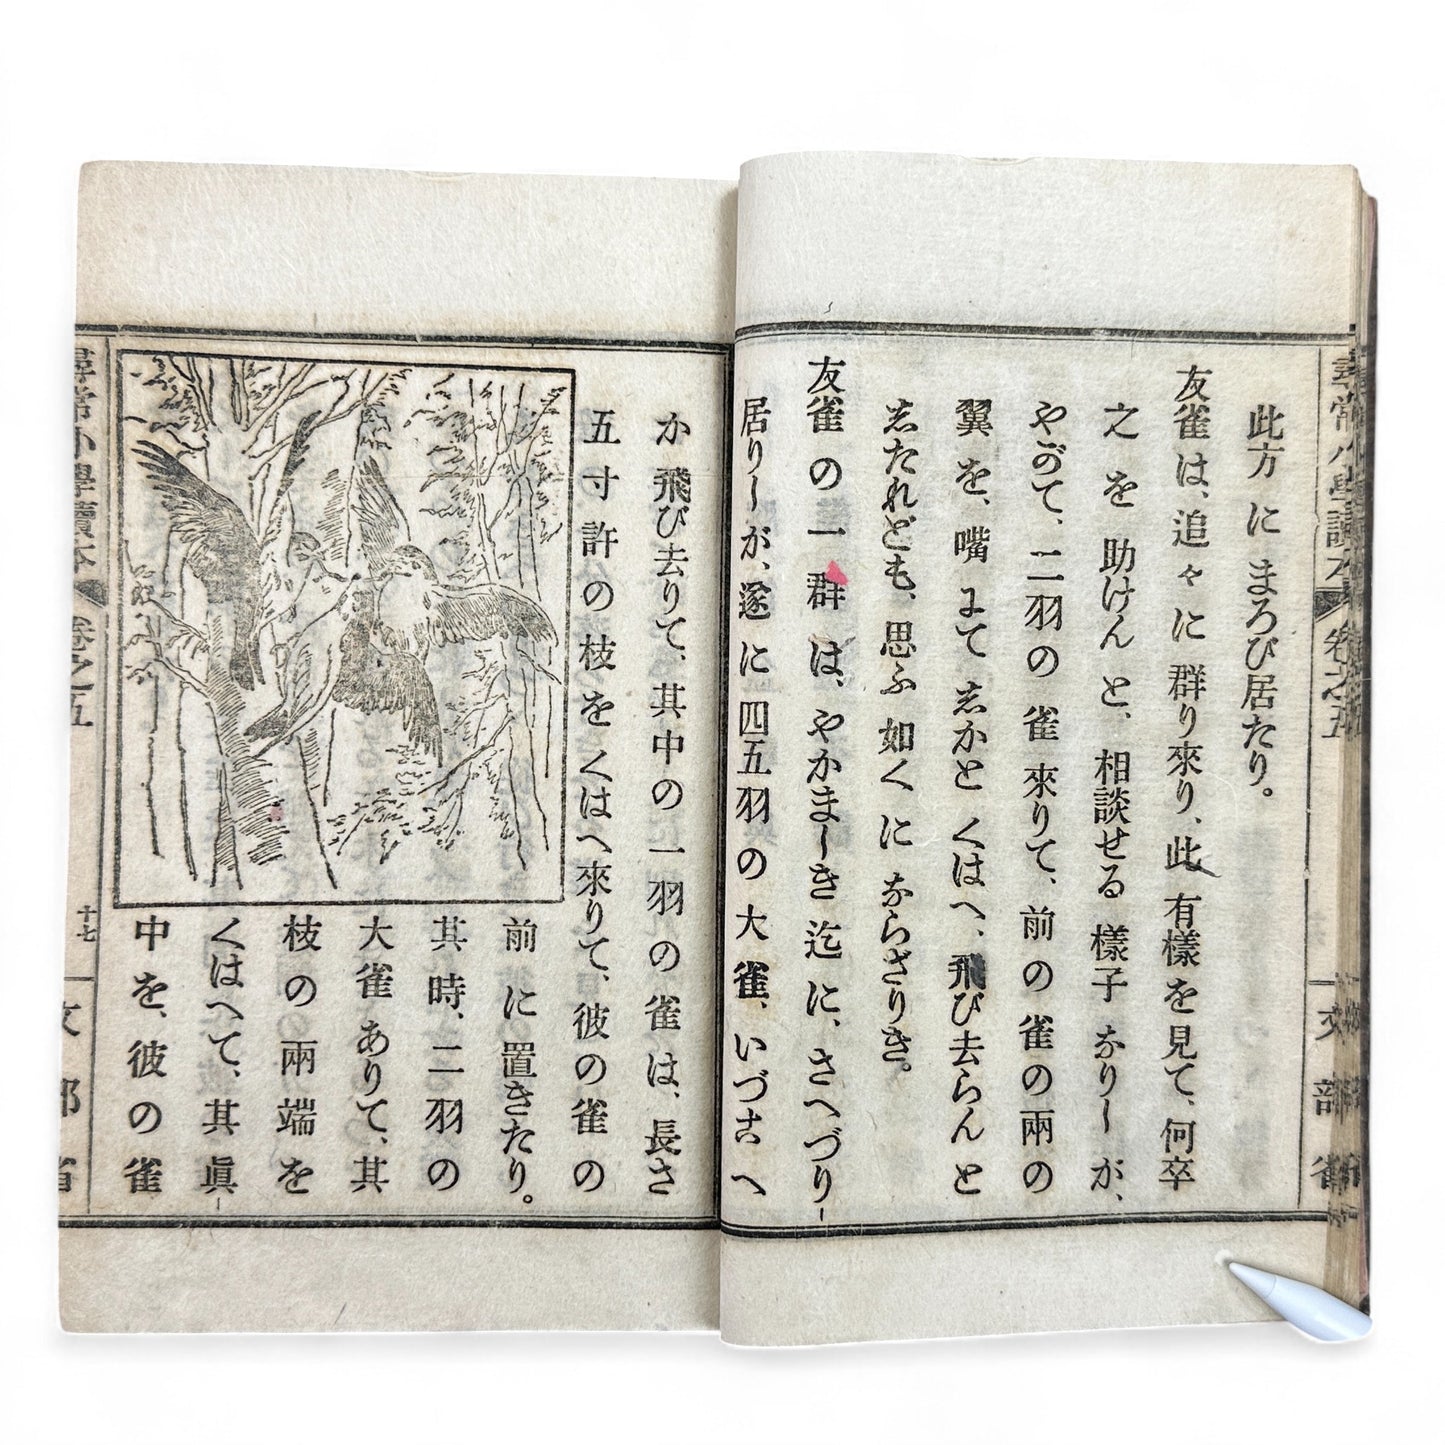 尋常小學讀本 卷之五 文部省
此方にまろび居たり。
友雀は、追々に群り來り、此有樣を見て、何卒
之を助けんと、相談せる樣子なりしが、
やがて、二羽の雀來りて、前の雀の兩の
翼を、嘴にてしかとくはへ、飛び去らんと
志たれども、思ふ如くにならざりき。
友雀の一群は、やかましき迄に、さへづり
居りしが、遂に四五羽の大雀、いづこへ
か飛び去りて、其中の一羽の雀は、長さ
五寸許の枝をくはへ來りて、彼の雀の
前に置きたり。
其時、二羽の
大雀ありて、其
枝の兩端を
くはへて、其眞
中を、彼の雀
尋常小學讀本 卷之五 十七 文部省